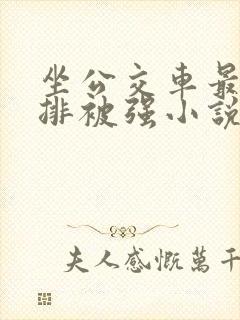 坐公交車最
排被强小說
夫人感慨萬千